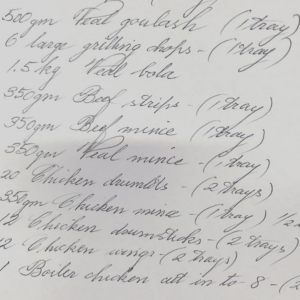 500gm Veal goulash (1 tray)
6 large grilling chops - (1 tray)
1.5 kg Veal bola
350gm Beef strips - (1 tray)
350gm Beef mince (1 tray)
350gm Veal mince - (1 tray)
20 Chicken drumlets - (2 trays)
350gm Chicken mince - (1 tray) 1/2
12 Chicken drumsticks - (2 trays)
12 Chicken wings - (2 trays)
1 Boiler chicken cut in to 8 - (2